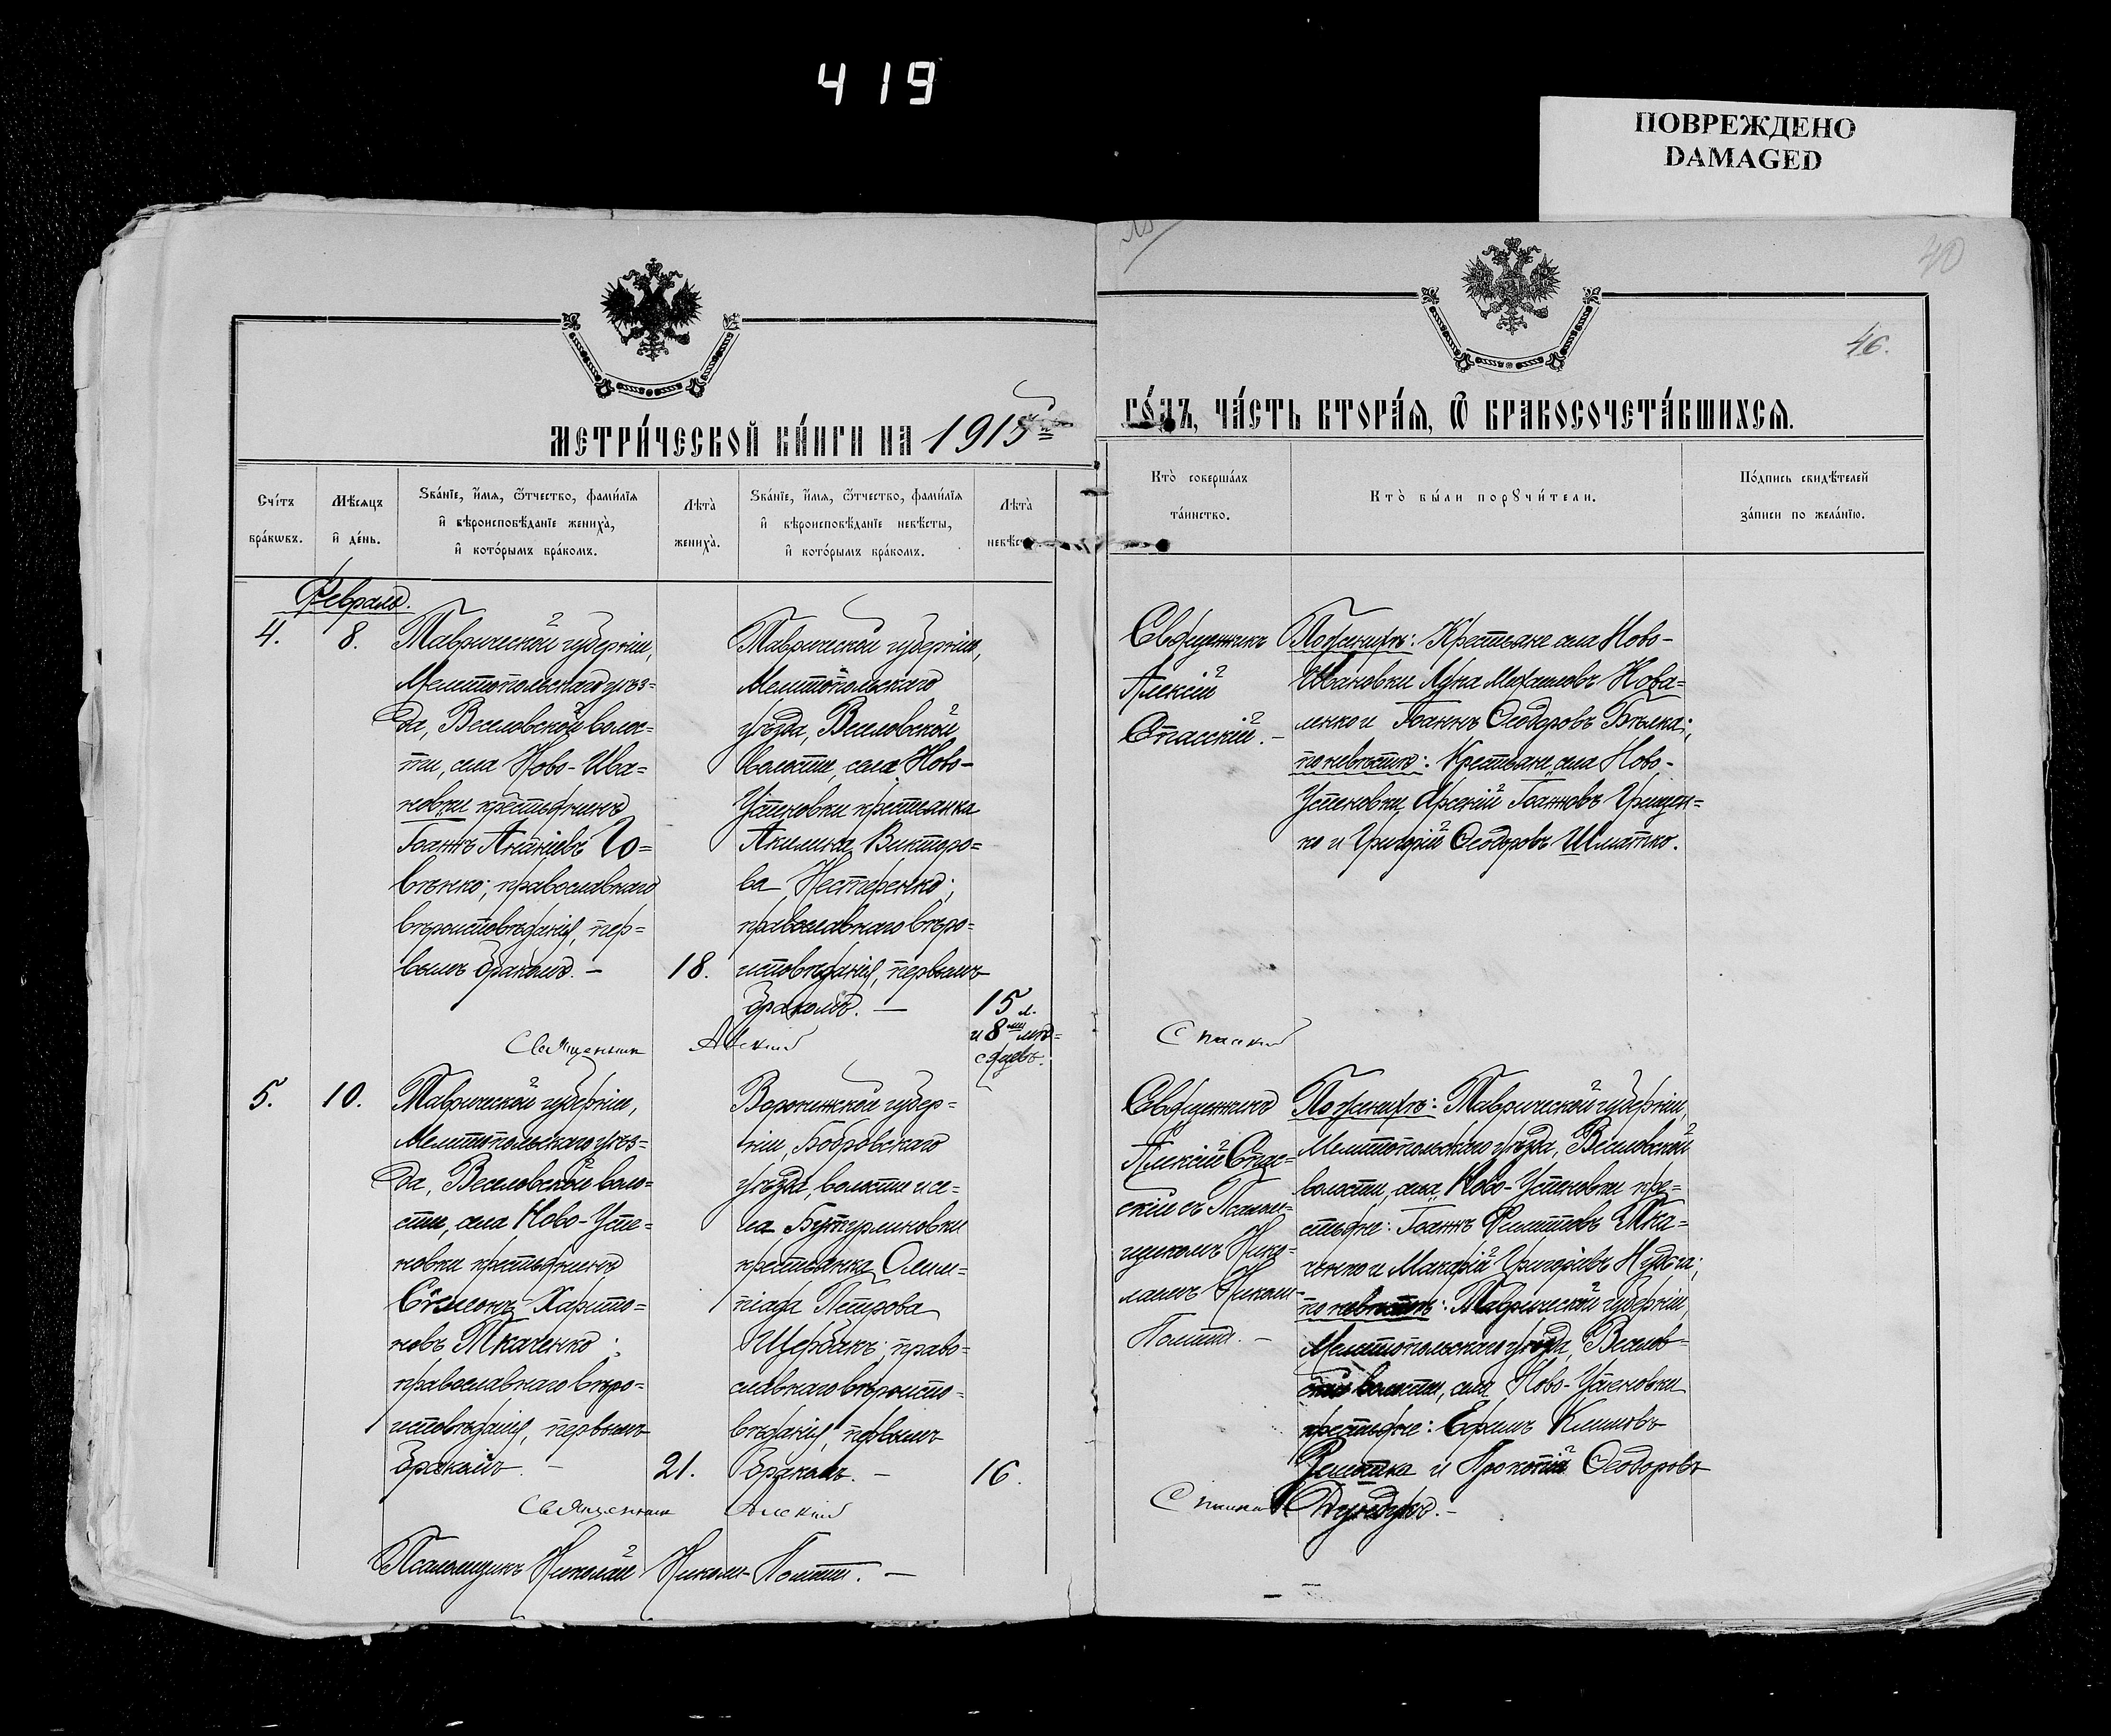 419
ПОВРЕЖДЕНО
DAMAGED
40
46.
МЕТРИ́ЧЕСКОЙ КНИ́ГИ НА 1915
ГО́ДЪ, ЧА́СТЬ ВТОРА́Я, Ѽ БРАКОСОЧЕТА́ВШИХСЯ.
Сче́тъ бра́кѡвъ.
Мѣ́сяцъ и҆ де́нь.
Ѕва́нїе, и҆́мя, ѻ҆́тчество, фами́лїя
и҆ вѣроисповѣ́данїе жениха̀,
и҆ кото́рымъ бра́комъ.
Лѣта̀ жениха̀.
Ѕва́нїе, и҆́мя, ѻ҆́тчество, фами́лїя
и҆ вѣроисповѣ́данїе невѣ́сты,
и҆ кото́рымъ бра́комъ.
Лѣта̀
Кто̀ соверша́лъ
та́инство.
Кто̀ бы́ли порꙋчи́тели.
По́дпись свидѣ́телей
за́писи по жела́нїю.
Февраль.
4.
8.
Таврической губерніи,
Мелитопольскаго уѣз=
да, Веселовской волос=
ти, села Ново-Ива=
новки крестьянинъ
Іоаннъ Ананіевъ Го=
вѣнко; православнаго
вѣроисповѣданія, пер=
вымъ бракомъ. –
18.
Таврической губерніи,
Мелитопольскаго
уѣзда, Веселовской
волости, села Ново-
Успеновки крестьянка
Акилина Викторо=
ва Нестеренко;
православнаго вѣро=
исповѣданія, первымъ
бракомъ. –
15 л.
и 8
Священникъ
Алексій
Спасскій. –
По женихѣ: Крестьяне села Ново-
Ивановки Лука Михаиловъ Кова=
ленко и Іоаннъ Ѳеодоровъ Бѣлка;
по невѣстѣ: Крестьяне села Ново-
Успеновки Іоанновъ Грицен=
ко и Григорій Ѳеодоровъ Шматко.
Священникъ Алексій Спасскій
5.
10.
Таврической губерніи,
Мелитопольскаго уѣз=
да, Веселовской воло=
сти, села Ново-Успе=
новки крестьянинъ
Симеонъ Харито=
новъ Ткаченко;
православнаго вѣро=
исповѣданія, первымъ
бракомъ. –
21.
Воронежской губер=
ніи, Бобровскаго
уѣзда, волости и се=
ла Бутурлиновки
крестьянка Олим=
піада Петрова
Щербакъ; право=
славнаго вѣроиспо=
вѣданія, первымъ
бракомъ. –
16.
Священникъ
Алексій Спас=
скій съ Псалом=
щикомъ Нико=
лаемъ
По женихѣ: Таврической губерніи,
Мелитопольскаго уѣзда, Веселовской
волости, села Ново-Успеновки кре=
стьяне: Іоаннъ Филипповъ Тка=
ченко и Макарій Григоріевъ
по невѣстѣ: Таврической губерніи,
Мелитопольскаго уѣзда, Веселов=
ской волости, села Ново-Успеновки
крестьяне: Ефимъ Климовъ
и Прокопій Ѳеодоровъ
Священникъ Алексій Спасскій
Псаломщикъ Николай